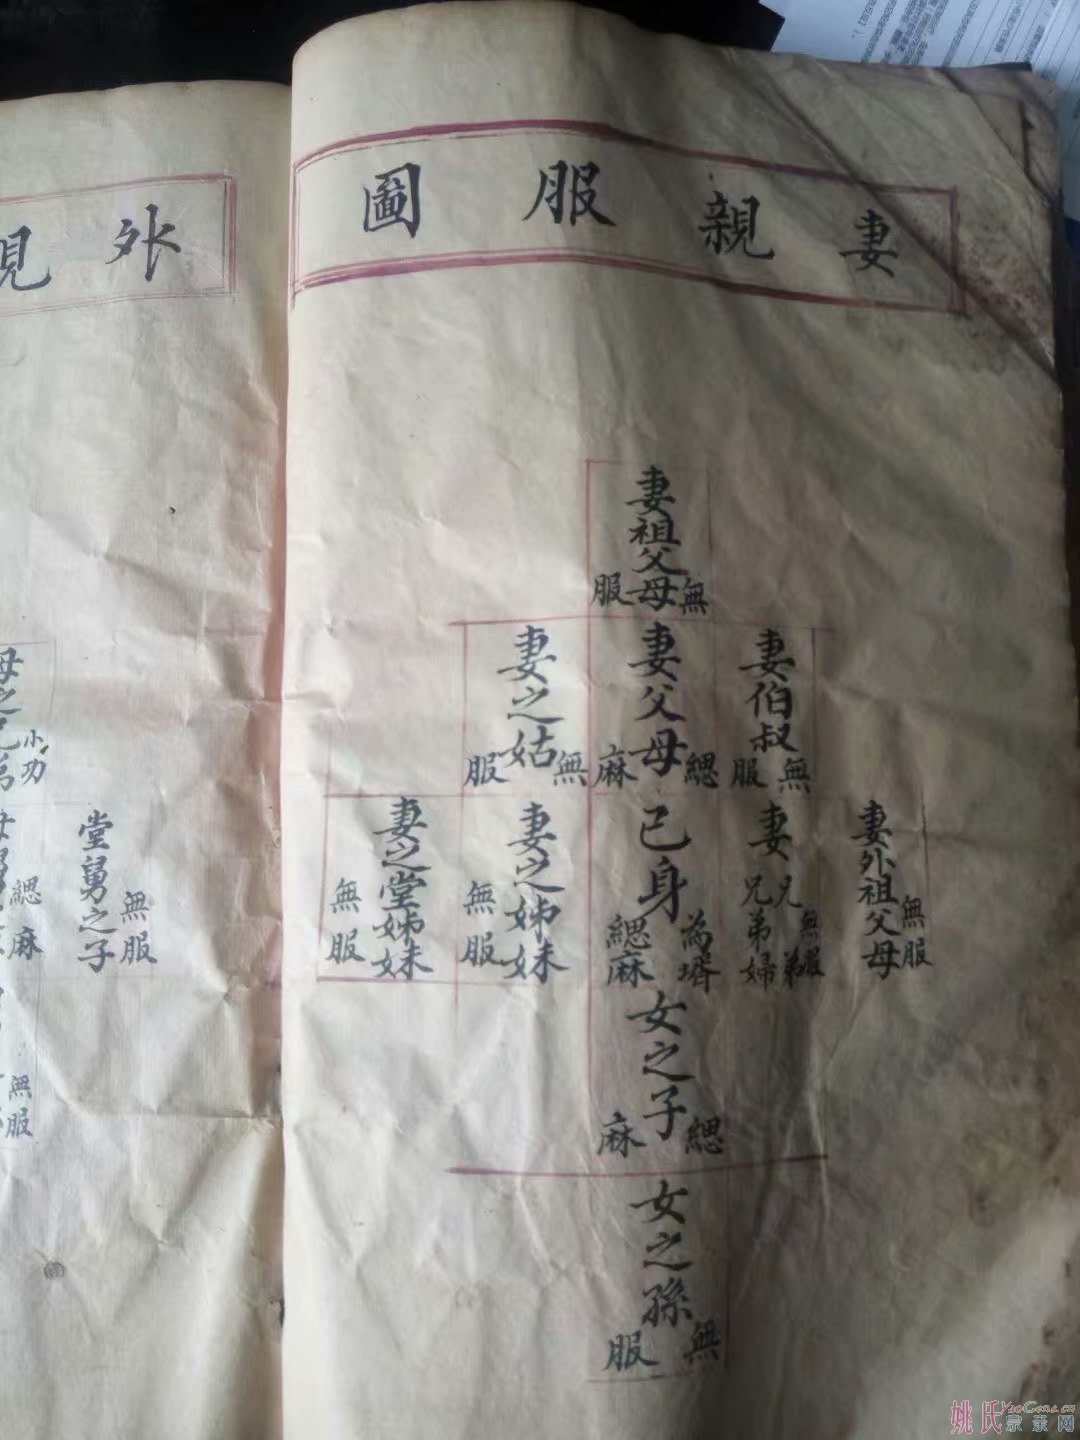 妻親服圖
妻祖父母
無服
妻伯叔
無服
妻父母
緦麻
妻之姑
無服
妻外祖父母
無服
妻兄弟
兄弟婦
無服
己身
為壻緦麻
妻之姊妹
無服
妻之堂姊妹
無服
女之子
緦麻
女之孫
無服
外
堂舅之子
無服
小功
緦麻
無服
姚氏宗亲网
YaoGene.cn